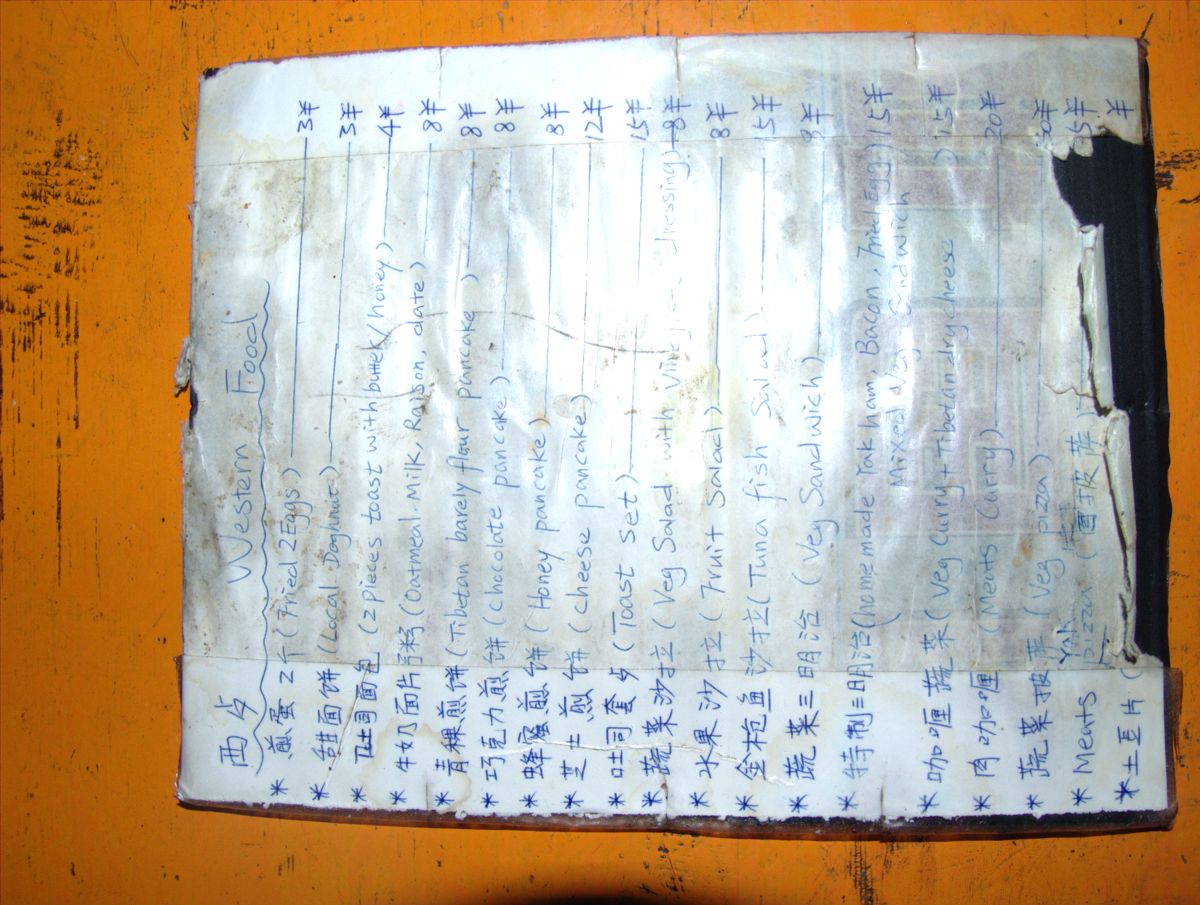 西点 Western Food
* 煎蛋2个 (Fried 2 Eggs) 3半
* 甜面饼 (Local Doghnut) 3半
* 吐司面包 (2 pieces toast with butter/honey) 4半
* 牛奶面片籽粥 (Oatmeal Milk, Raison, date) 8半
* 青稞煎饼 (Tibetan barely flour pancake) 8半
* 巧克力煎饼 (chocolate pancake) 8半
* 蜂蜜煎饼 (Honey pancake) 8半
* 芝士煎饼 (cheese pancake) 12半
* 吐司套点 (Toast set) 15半
* 蔬菜沙拉 (Veg Salad with dressing) 8半
* 水果沙拉 (Fruit Salad) 8半
* 金枪鱼沙拉 (Tuna fish Salad) 15半
* 蔬菜三明治 (Veg Sandwich) 8半
* 特制三明治 (homemade Yak ham, Bacon, fried Egg) 15半
( Mixed Veg Sandwich
* 咖喱蔬菜 (Veg Curry + Tibetan dry cheese ) 15半
* 肉咖喱 (Meats Curry) 20半
* 蔬菜披萨 (Veg pizza)
* Meats Yak Pizza ( 披萨 ) 5半
* 土豆片 ( 半